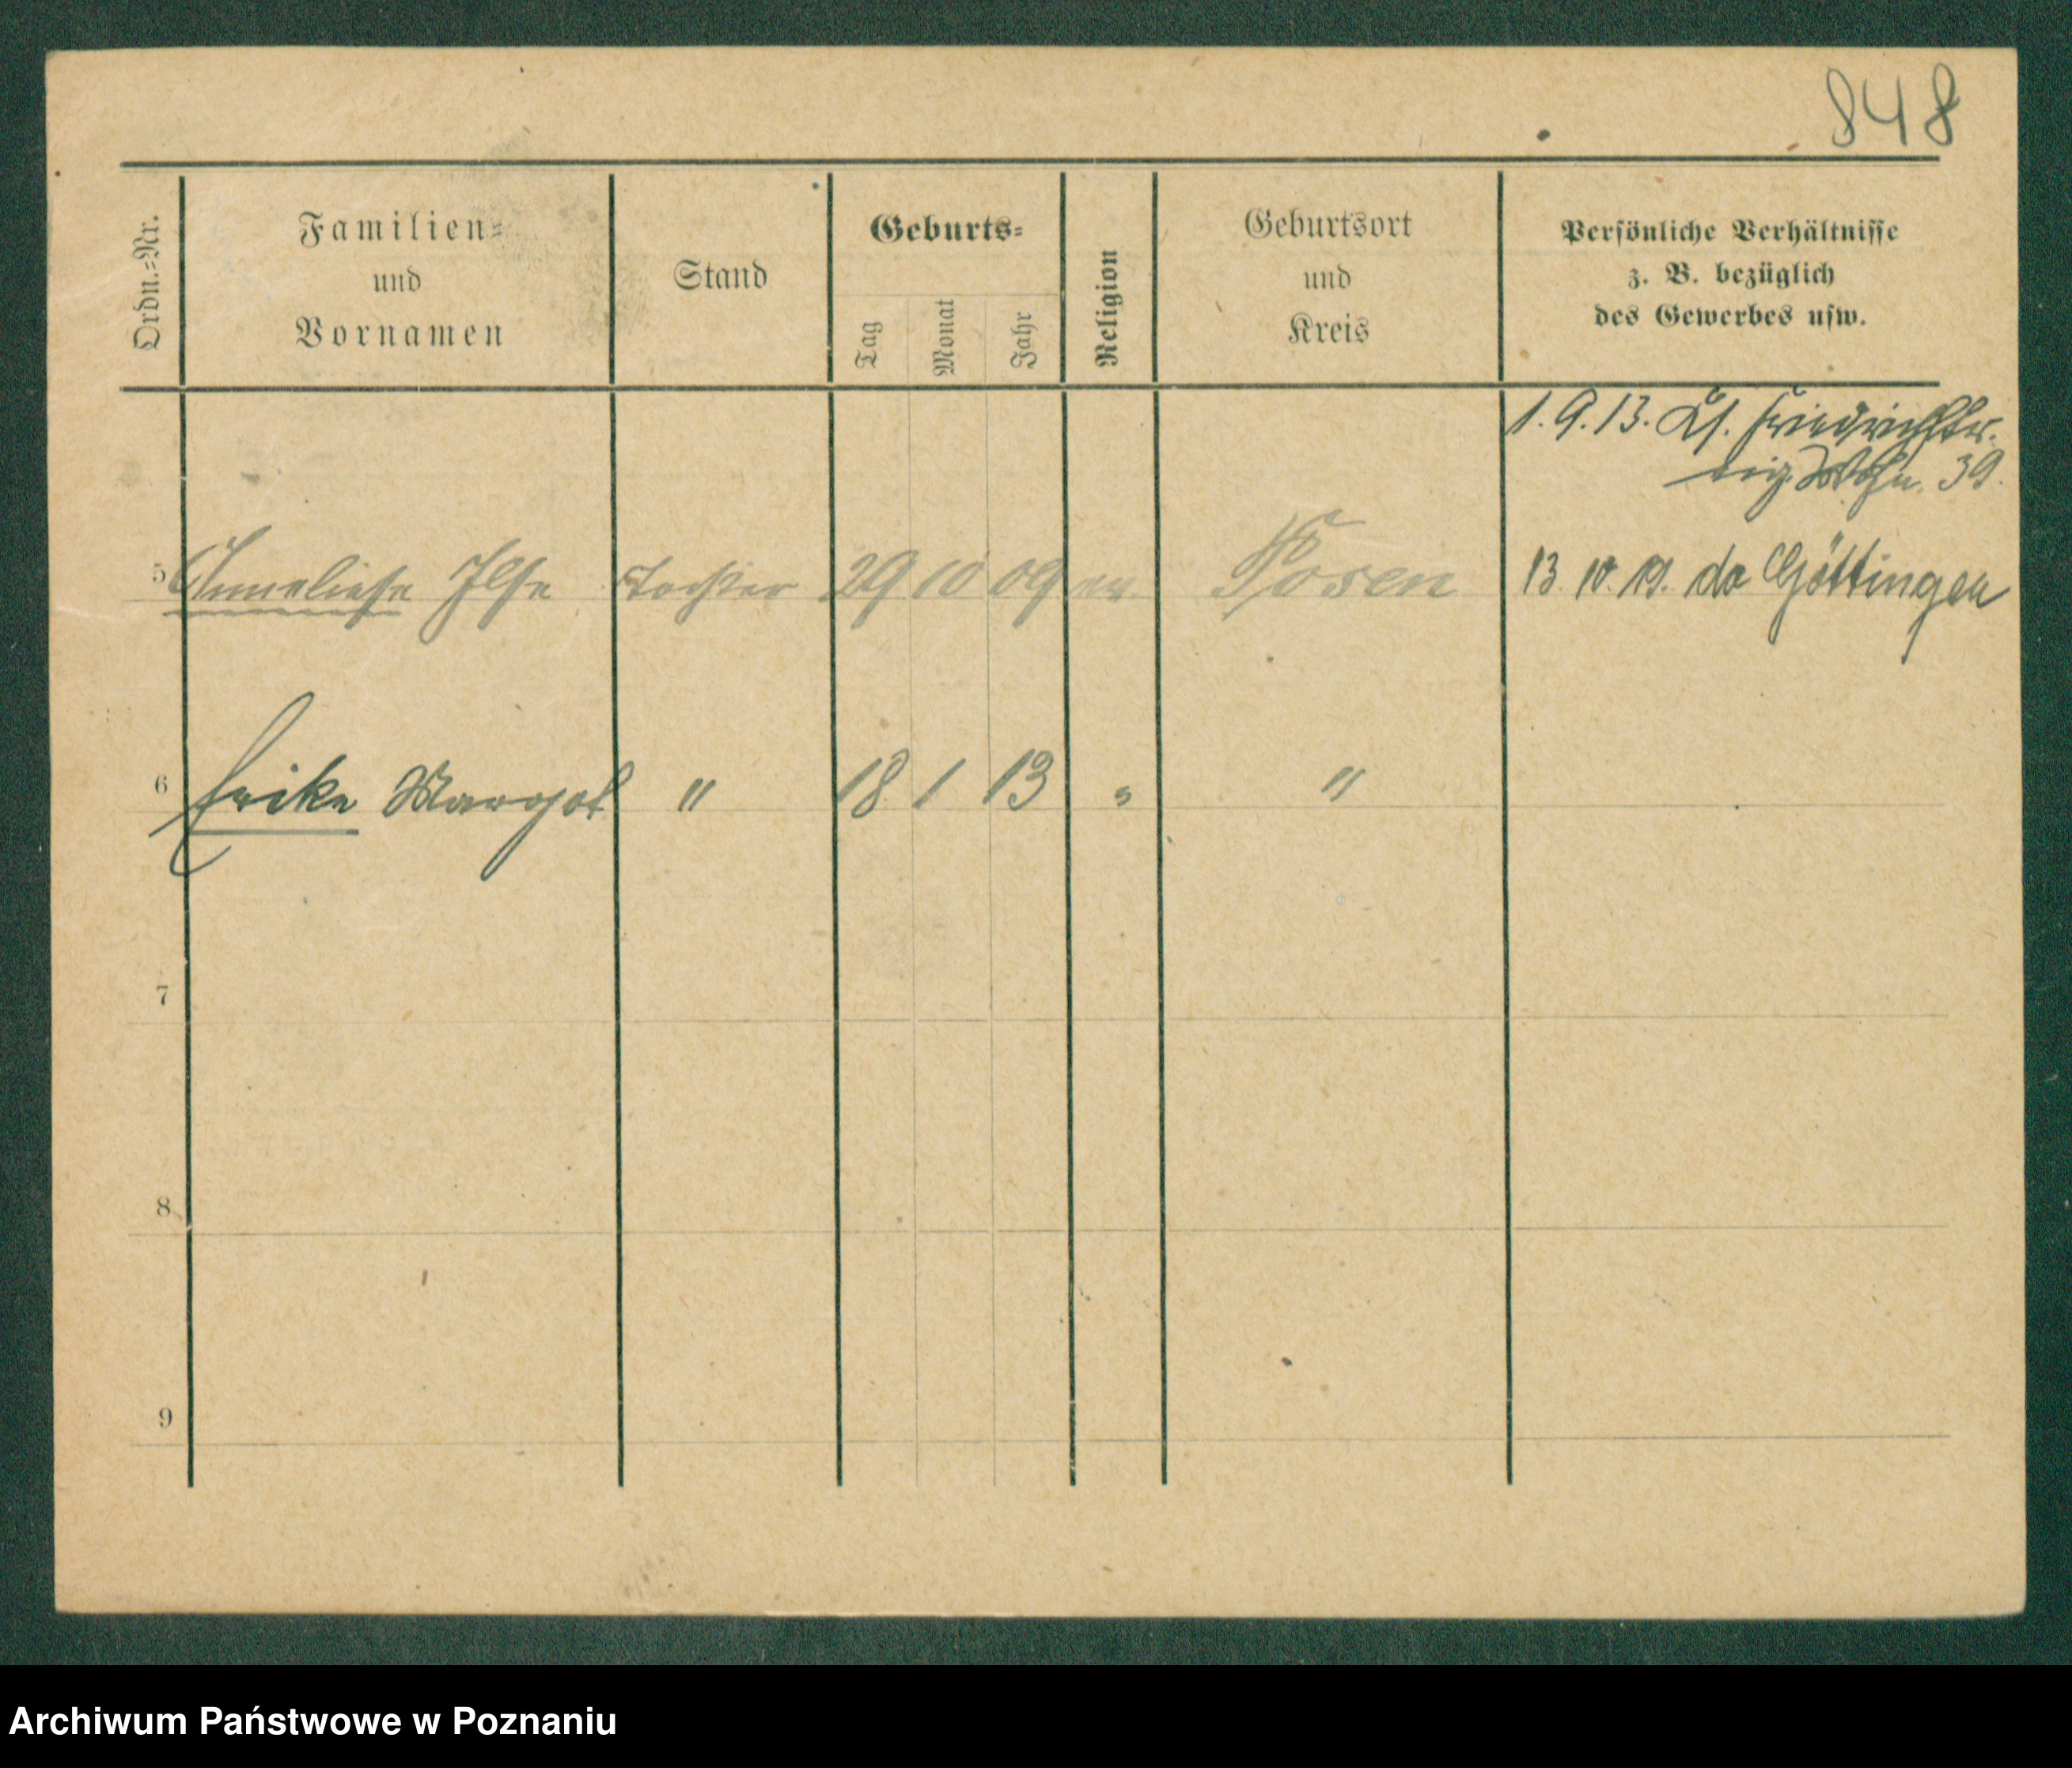 848
Ordn.=Nr.
Familien=
und
Vornamen
Stand
Geburts=
Tag
Monat
Jahr
Religion
Geburtsort
und
Kreis
Persönliche Verhältnisse
z. B. bezüglich
des Gewerbes usw.
1. 9. 13. Friedrichstr.
eig. Wohn. 39.
5 Anneliese Ilse Tochter 29 10 09 ev. Posen 13. 10. 19. do Göttingen
6 Erika Margot " 18 1 13 " "
7
8
9
Archiwum Państwowe w Poznaniu